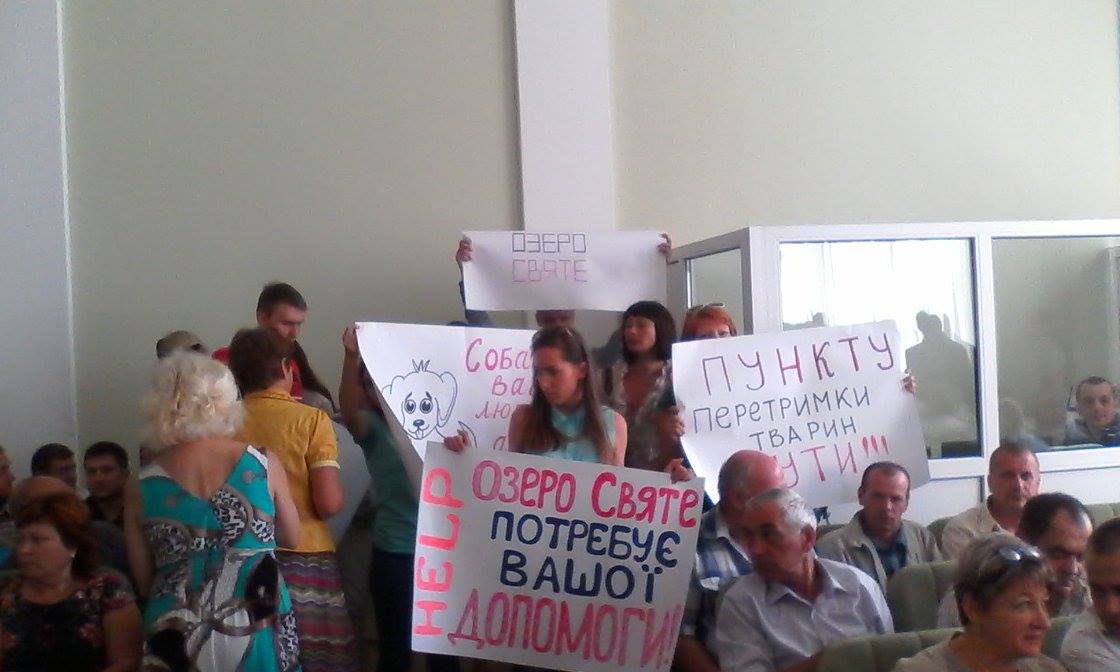 ОЗЕРО
СВЯТЕ
ПУНКТУ
ПЕРЕТРИМКИ
ТВАРИН
HELP
ОЗЕРО СВЯТЕ
ПОТРЕБУЄ
ВАШОЇ
ДОПОМОГИ!